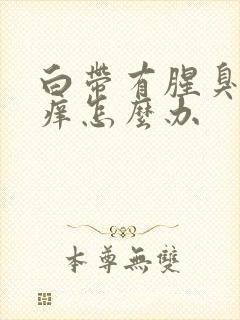 白帶有腥臭
痒怎麼办
本尊無雙